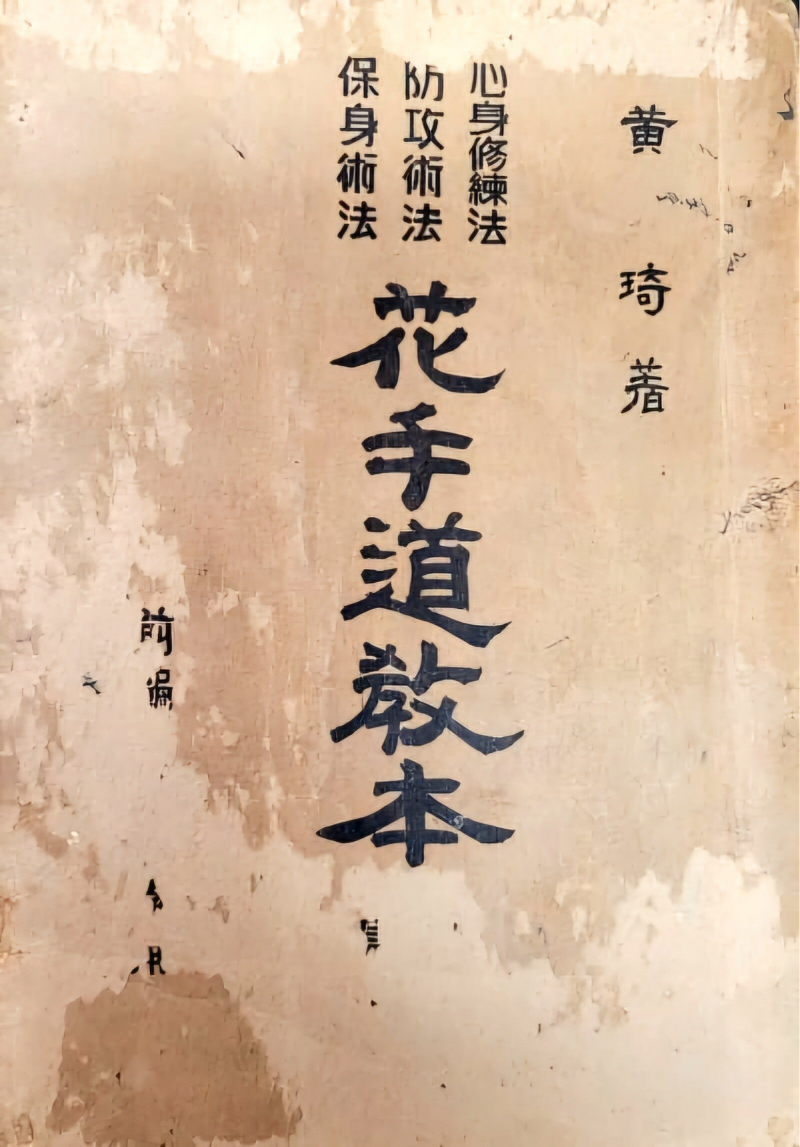 黄琦著
心身修練法
防攻術法
保身術法
花手道教本
前編